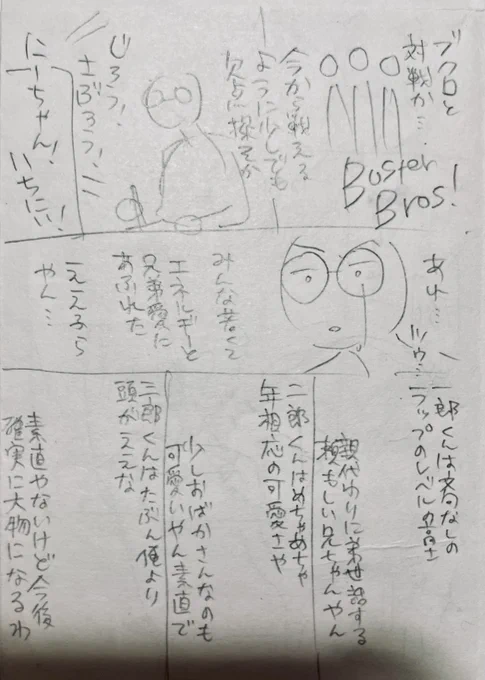 ブクロと
対戦か…
Buster
Bros!
今から戦える
ように少しでも
欠点探そか
じろう!
さぶろう!
にーちゃん!
いちにい!
あれ…
ツゥ…
みんな若くて
エネルギーと
兄弟愛に
あふれた
ええ子ら
やん…
一郎くんは文句なしの
ラップのレベルの高さ
親代わりに弟世話する
頼もしい兄ちゃんやん
二郎くんはめちゃめちゃ
年相応の可愛さや
少しおばかさんなのも
可愛いやん素直で
三郎くんはたぶん俺より
頭がええな
素直やないけど今後
確実に大物になるわ